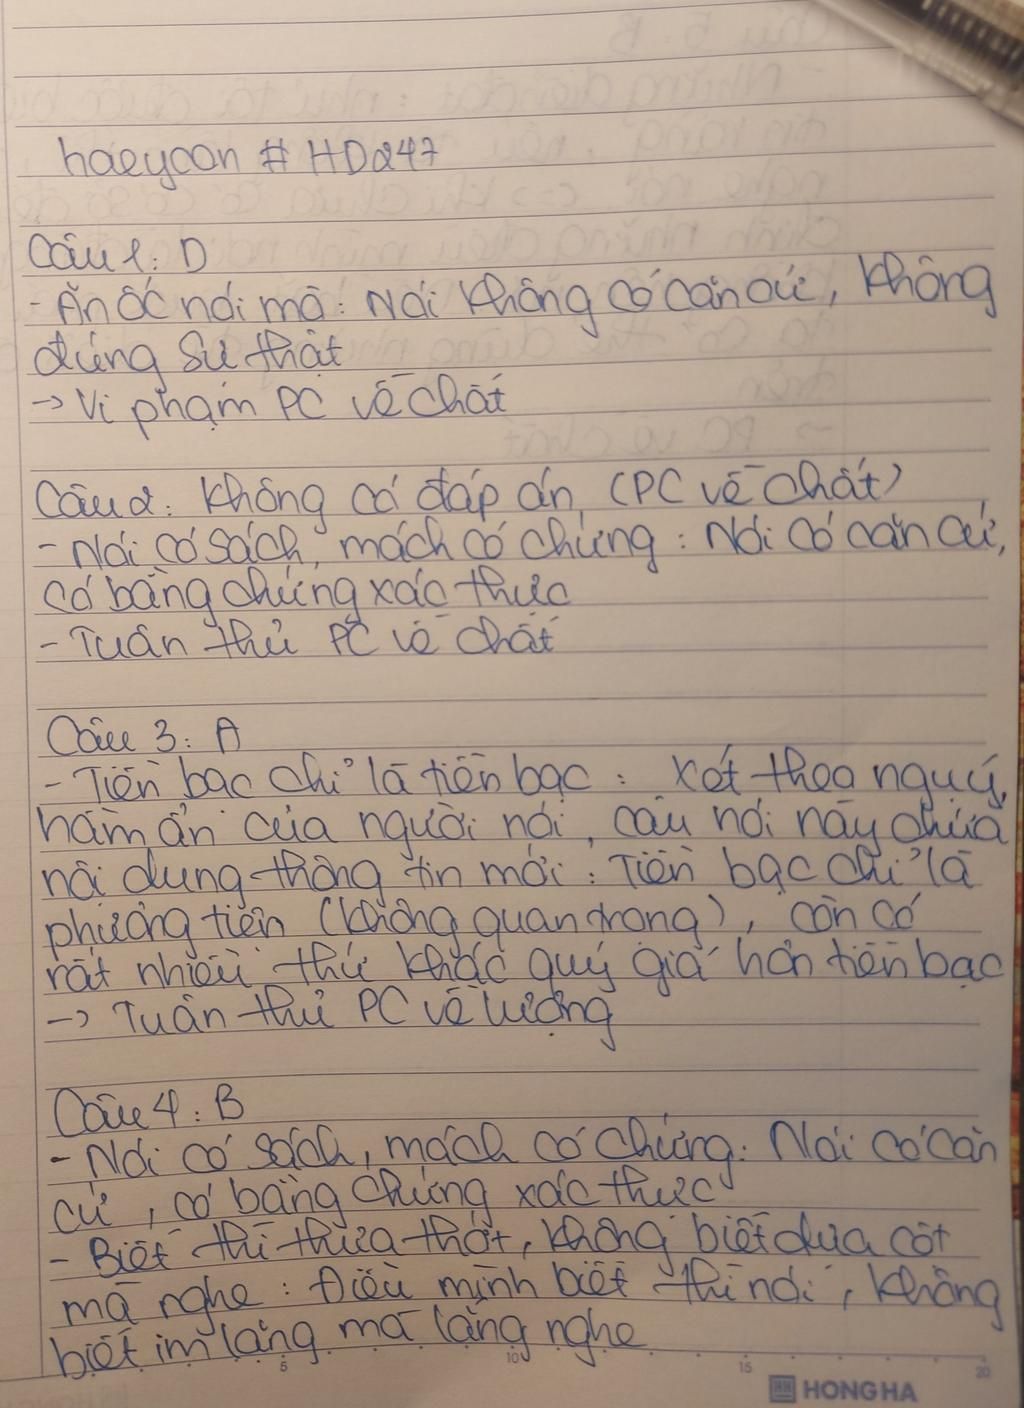 haeyoon # HD247
Câu 1: D
- Ăn ốc nói mò: Nói không có căn cứ, không
đúng sự thật
-> Vi phạm PC về chất
Câu 2: Không có đáp án (PC về chất)
- Nói có sách, mách có chứng: Nói có căn cứ,
có bằng chứng xác thực
- Tuân thủ PC về chất
Câu 3: A
- Tiền bạc chỉ là tiền bạc: Xét theo nguý,
hàm ẩn của người nói, câu nói này chứa
nội dung thông tin mới: Tiền bạc chỉ là
phương tiện (không quan trọng), còn có
rất nhiều thứ khác quý giá hơn tiền bạc
-> Tuân thủ PC về lượng
Câu 4: B
- Nói có sách, mách có chứng: Nói có căn
cứ, có bằng chứng xác thực
- Biết thì thưa thớt, không biết dựa cột
mà nghe: Điều mình biết thì nói, không
biết im lặng mà lắng nghe
5 10 15 20
HH HONG HA